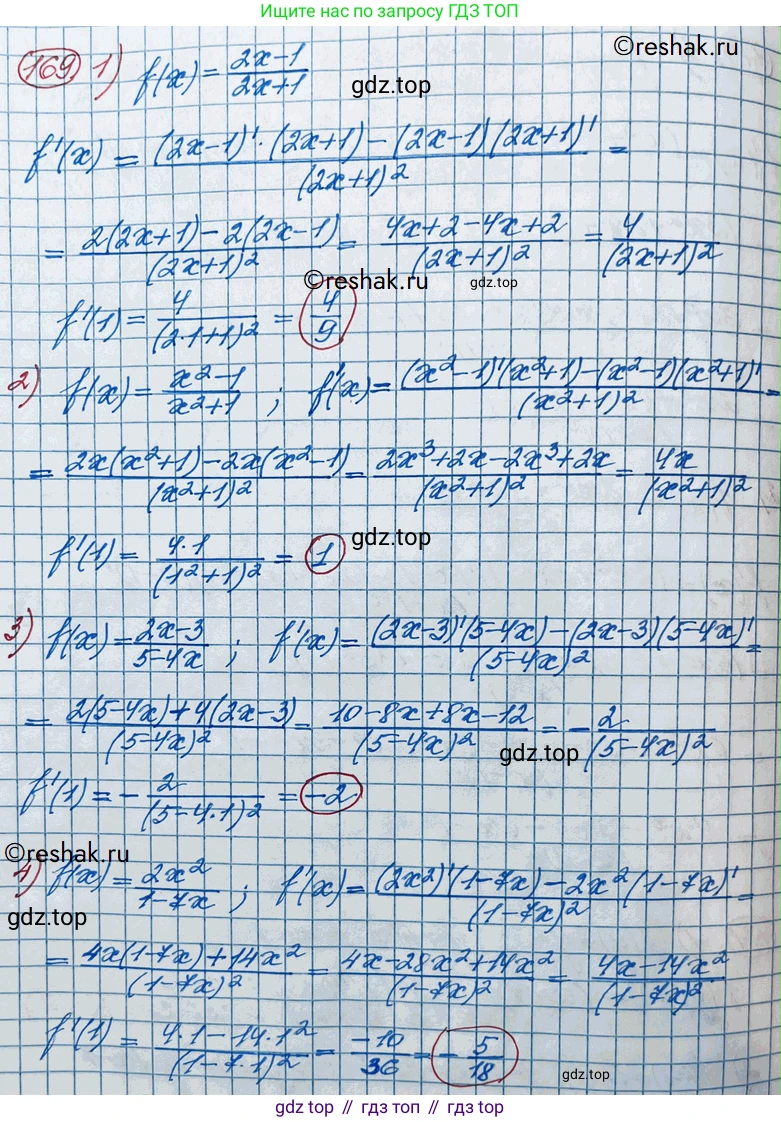 Ищите нас по запросу ГДЗ ТОП
©reshak.ru
169 1) f(x) = (2x-1)/(2x+1)
gdz.top
f'(x) = ((2x-1)'·(2x+1)-(2x-1)(2x+1)')/(2x+1)² =
= (2(2x+1)-2(2x-1))/(2x+1)² = (4x+2-4x+2)/(2x+1)² = 4/(2x+1)²
©reshak.ru
gdz.top
f'(1) = 4/(2·1+1)² = 4/9
2) f(x) = (x²-1)/(x²+1) ; f'(x) = ((x²-1)'(x²+1)-(x²-1)(x²+1)')/(x²+1)² =
= (2x(x²+1)-2x(x²-1))/(x²+1)² = (2x³+2x-2x³+2x)/(x²+1)² = 4x/(x²+1)²
f'(1) = 4·1/(1²+1)² = 1
gdz.top
3) f(x) = (2x-3)/(5-4x) ; f'(x) = ((2x-3)'(5-4x)-(2x-3)(5-4x)')/(5-4x)² =
= (2(5-4x)+4(2x-3))/(5-4x)² = (10-8x+8x-12)/(5-4x)² = -2/(5-4x)²
gdz.top
f'(1) = -2/(5-4·1)² = -2
©reshak.ru
4) f(x) = 2x²/(1-7x) ; f'(x) = ((2x²)'(1-7x)-2x²(1-7x)')/(1-7x)² =
gdz.top
= (4x(1-7x)+14x²)/(1-7x)² = (4x-28x²+14x²)/(1-7x)² = (4x-14x²)/(1-7x)²
f'(1) = (4·1-14·1²)/(1-7·1)² = -10/36 = -5/18
gdz.top
gdz.top // гдз топ // gdz.top